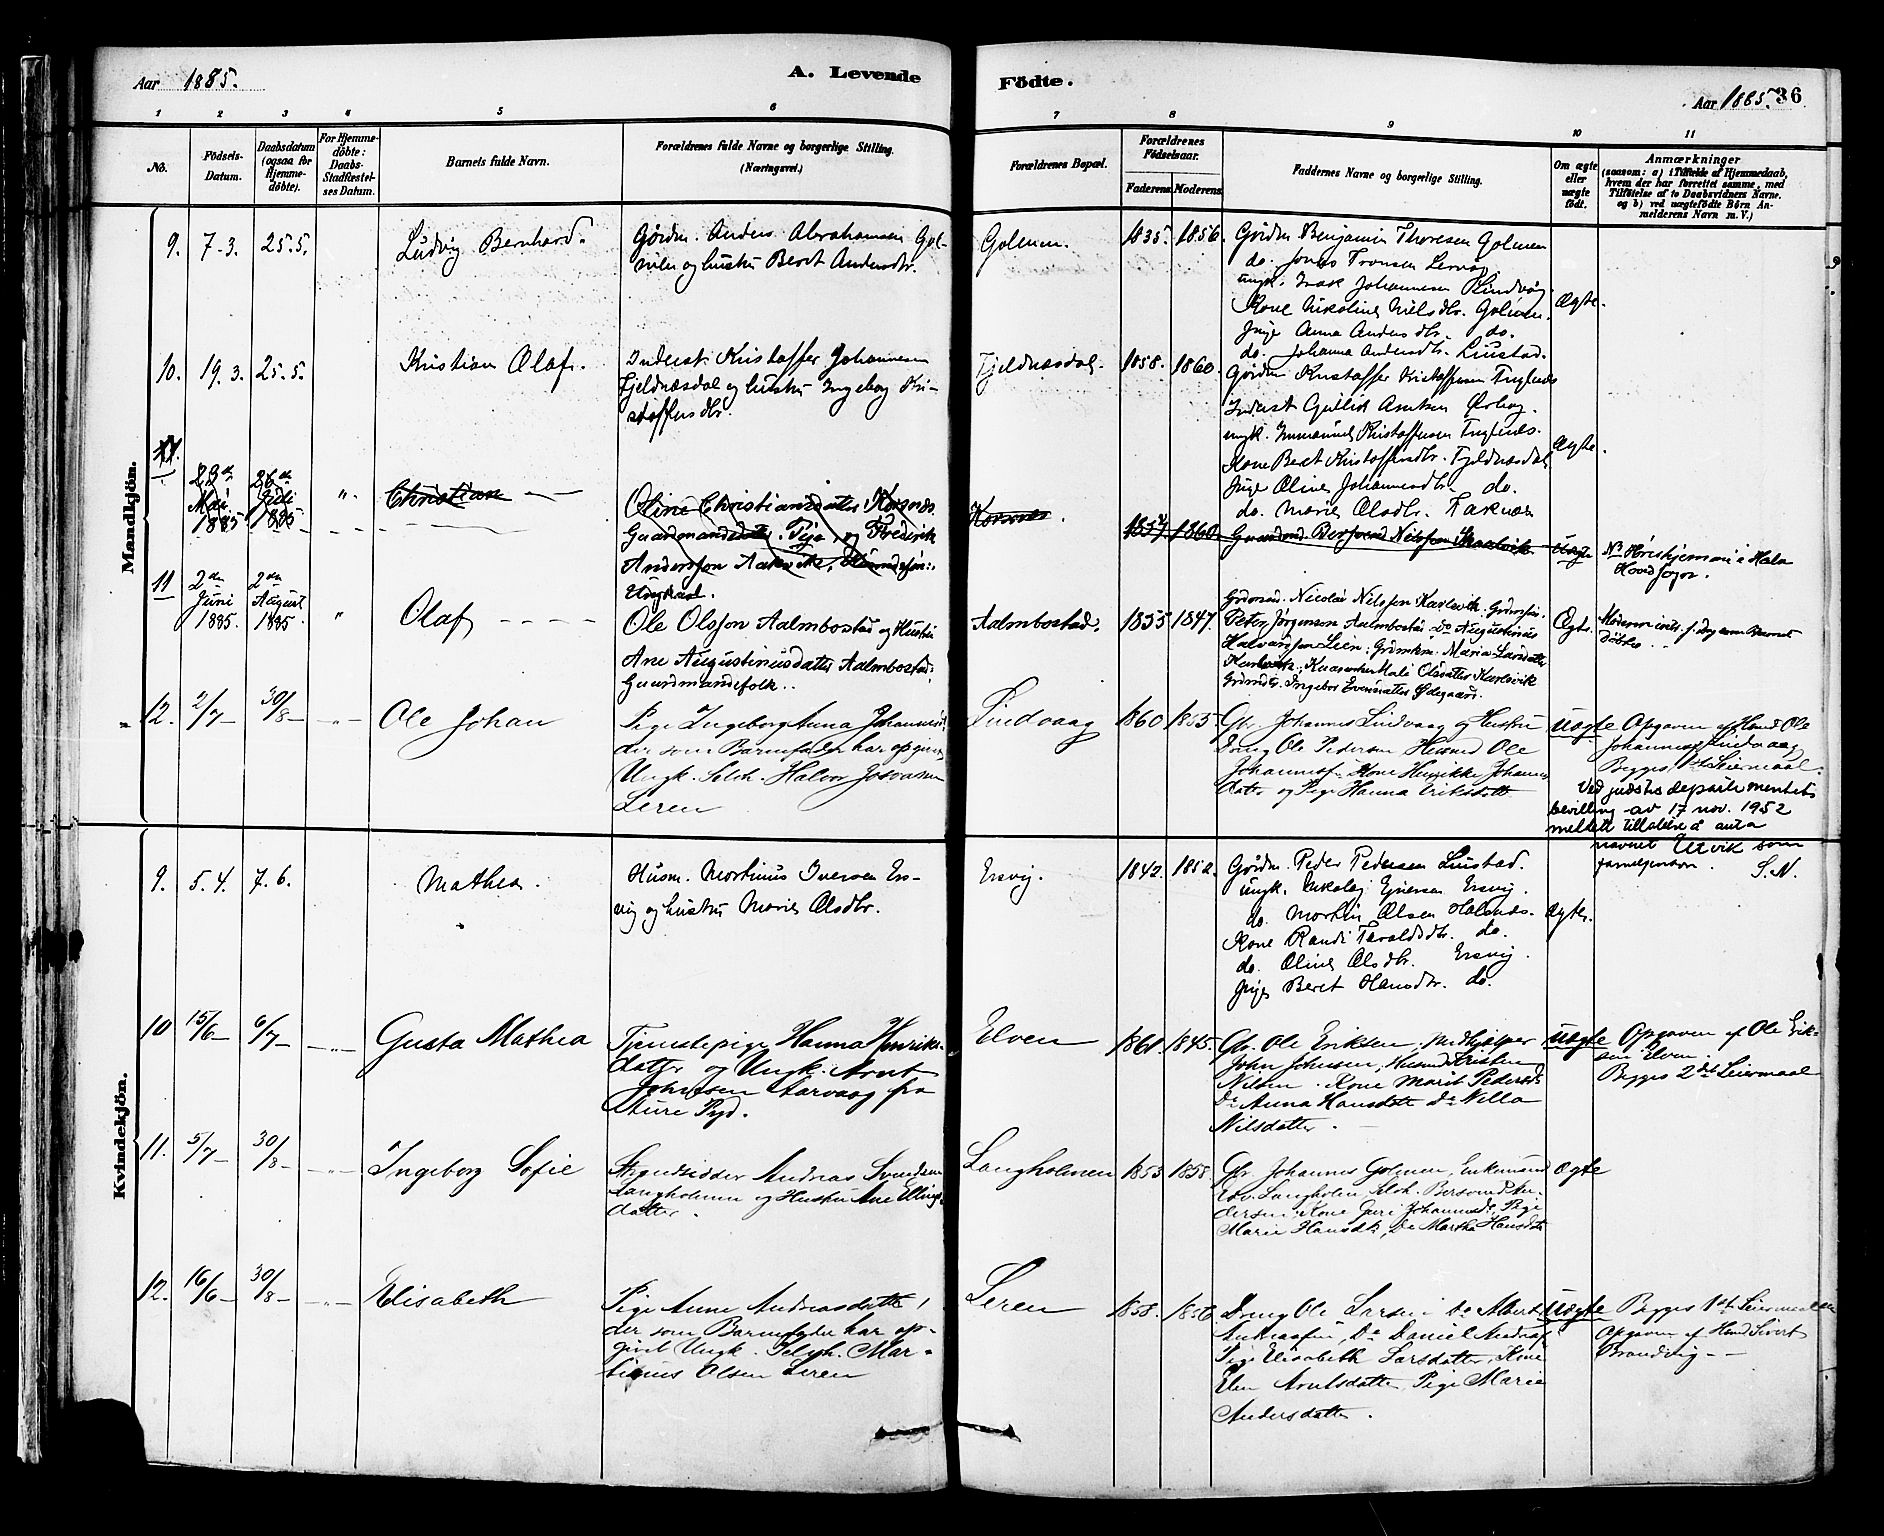 Aar 1885.
A. Levende
Födte.
Aar 1885. 36
1 2 3 4 5 6 7 8 9 10 11
No.
Födsels-Datum.
Daabsdatum (ogsaa for Hjemmedöbte).
For Hjemmedöbte: Daabs-Stadfæstelses Datum.
Barnets fulde Navn.
Forældrenes fulde Navne og borgerlige Stilling. (Næringsvei.)
Forældrenes Bopæl.
Forældrenes Födselsaar.
Faderens. Moderens.
Faddernes Navne og borgerlige Stilling.
Om ægte eller uægte födt.
Anmærkninger
(saasom: a) i Tilfælde af Hjemmedaab, hvem der har forrettet samme, med Tilföielse af to Daabsvidners Navne. og b) ved uægtefödte Börn Anmelderens Navn m. V.)
Mandkjön.
9. 7-3. 25.5. Ludvig Bernhard.
Gårdm. Anders Abrahamsen Gol-
men og hustru Beret Andersdtr.
Golmen. 1835. 1856.
Gårdm Benjamin Thoresen Golmen
do. Jonas Tronsen Lervåg
ungk. Isak Johannesen Kindvåg
Kone Nikoline Nielsdtr. Golmen.
Pige Anna Andersdtr. do.
do. Johanna Andersdtr. Liustad.
Ægte.
10. 19.3. 25.5. Kristian Olaf.
Inderst Kristoffer Johannesen
Fjeldnæsdal og hustru Ingeborg Kri-
stoffersdtr.
Fjeldnæsdal. 1858. 1860.
Gårdm Kristoffer Kristoffersen
Inderst Gullik Arntsen
ungk. Immanuel Kristoffersen
Kone Beret Kristoffersdtr. Fjeldnæsdal
Pige Oline Johannesdtr. do.
do. Marie Olsdtr. Taknæs
Ægte.
11.
23de Mai 1885 26de Juli 1885 " Christian
Oline Christiansdatter Korsnæs
Gaardmandsdatter. Pige, og Frederik
Anderssen
Ungkarl.
Korsnæs. 1857 1860.
Gaardmd. Bersvend Nilssen
Uægt
No Höriskjemai i Halsa
Hovedsogn.
11 2den Juni 1885. 2den August 1885 " Olaf
Ole Olsson Aalmbostad og Hustru
Ane Augustinusdatter Aalmbostad.
Gaardmandsfolk.
Aalmbostad. 1855 1847.
Grdmsd. Nicolai Nilsson Karlsvik. Grdmsön.
Peter Jörgensen Aalmbostad. Do Augustinus
Halvardsson Lein; Grdmkn. Maria Larsdatter
Karlsvik; Mali Olsdatter Karlsvik
Grdmdtr. Ingebor Evensdatter Ödegaard.
Ægte.
12. 2/7- 30/8- -"- Ole Johan
Pige Ingeborg Anna Johannesd.
der som Barnefader har opgivet
Ungk. Selvh. Halvor Josvasen
Leren
Lindvaag 1860 1855.
Gbr. Johannes Lindvaag og Hustru
Dreng Ole Pedersen Husmd Ole
Johannesf. Kone Henrikke Johannes
datter og Pige Hanna Eriksdatt
Uægte
Opgaven af Husmd Ole
Johannes Lindvaag
Begges 1st Leiermaal.
Ved justisdepartementets
bevilling av 17 nov. 1952
meddelt tillatelse å anta
navnet Utvik som
familjenavn. S.N.
Kvindekjön.
9. 5.4. 7.6. Mathea.
Husm. Mortinus Iversen Ers-
vig og hustru Marie Olsdtr.
Ersvig. 1842. 1852.
Gårdm. Peder Pedersen Liustad.
ungk. Nikolaj Ejnersen Ersvig.
do. Martin Olsen Halsnæs.
Kone Randi Taraldsdtr. do.
do. Oline Olsdtr. Ersvig.
Pige Beret Hansdtr. do.
Ægte.
10 15/6- 6/7- -"- Gusta Mathea
Tjenestepige Hanna Henriks-
datter og Ungk. Arnt
Johnsen Aarvaag fra
Aure Pgd.
Elven 1861. 1845.
Gbr. Ole Eriksen, Medhjælper
John Johnsen, Husmd Kristen
Nilsen. Kone Marit Pedersd
Do Anna Hansdatt Do Nilla
Nilsdatter.
Uægte
Opgaven af Ole Erik-
sen Elven.
Begges 2det Leiermaal
11. 5/7- 30/8- -"- Ingeborg Sofie
Strandsidder Andreas Svendsen
Langholmen og Hustru Ane Ellings
datter.
Langholmen 1853 1858.
Gbr. Johannes Golmen, Enkemand
Edv. Langholm Selvh. Bersvend An-
dersen, Kone Guri Johannesd. Pige
Marie Hansdtr, Do Martha Hansdatt
Ægte
12. 16/6- 30/8- -"- Elisabeth
Pige Anne Andreasdatter,
der som Barnefader har op-
givet Ungk. Selvh. Mar-
tinus Olsen Leren
Leren 1858. 1856.
Dreng Ole Larsen, Do Albert
Andreasen, Do Daniel Andreas
Pige Elisabeth Larsdatter, Kone
Elen Arntsdatter, Pige Marie
Andersdatter.
Uægte
Begges 1st Leiermaal
Opgaven af Husmd Sivert
Brandvig -